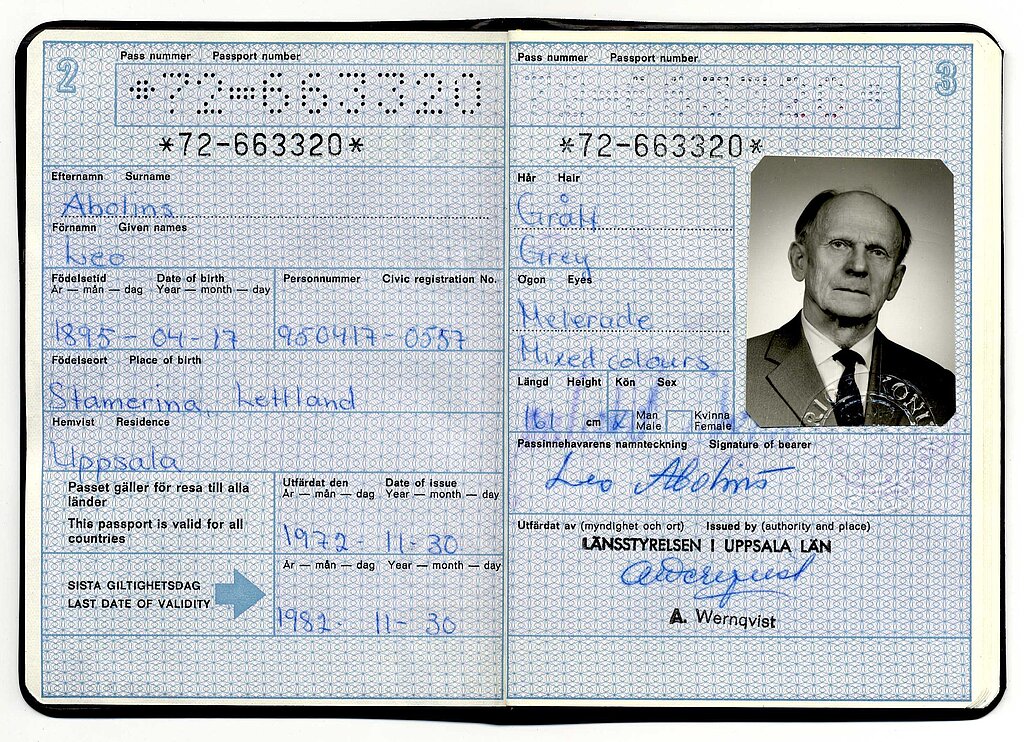 2
Pass nummer Passport number
*72-663320
*72-663320*
Efternamn Surname
Abolins
Förnamn Given names
Leo
Födelsetid Date of birth
År — mån — dag Year — month — day
1895 - 04 - 17
Personnummer Civic registration No.
950417-0557
Födelseort Place of birth
Stamerina, Lettland
Hemvist Residence
Uppsala
Passet gäller för resa till alla
länder
This passport is valid for all
countries
Utfärdat den Date of issue
År — mån — dag Year — month — day
1972 - 11 - 30
SISTA GILTIGHETSDAG
LAST DATE OF VALIDITY
År — mån — dag Year — month — day
1982 - 11 - 30
3
Pass nummer Passport number
*72-663320*
Hår Hair
Grått
Grey
Ögon Eyes
Melerade
Mixed colours
Längd Height Kön Sex
161 cm x Man Kvinna
Male Female
Passinnehavarens namnteckning Signature of bearer
Leo Abolins
Utfärdat av (myndighet och ort) Issued by (authority and place)
LÄNSSTYRELSEN I UPPSALA LÄN
A. Wernqvist